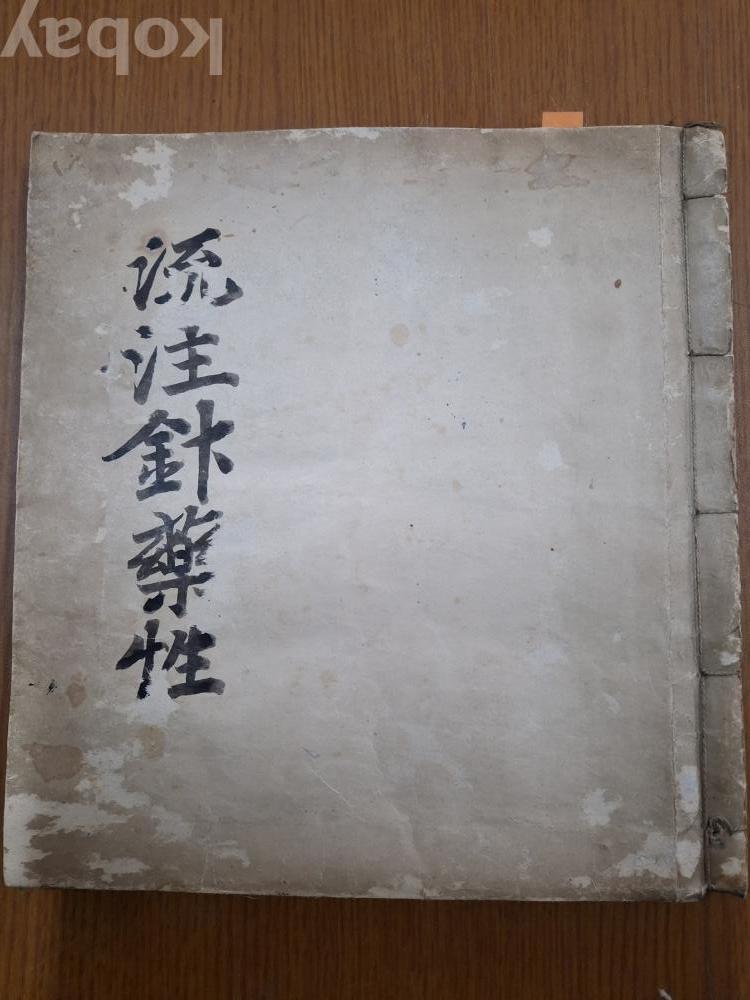 kobay
流注針藥性